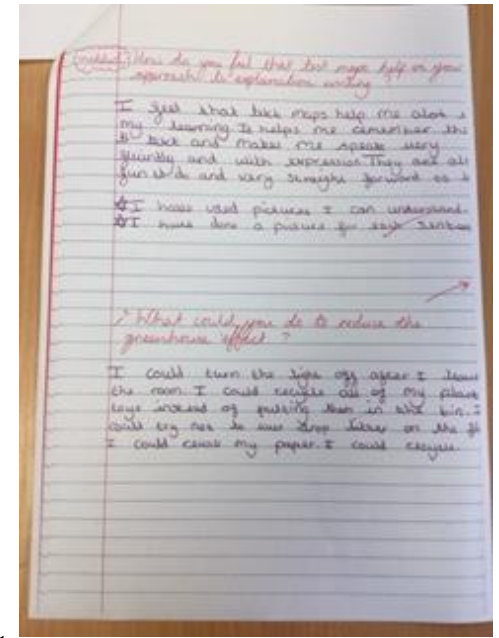 How do you feel that text maps help in your
approach to explanation writing
I feel that text maps help me alot
my learning It helps me remember the
text and makes me speak very
fluently and with expression They are
fun to do and very straight forward
I have used pictures I can understand.
I have done a picture for each
What could you do to reduce the
greenhouse effect ?
I could turn the light off after I leave
the room. I could recycle all of my
instead of putting them in the bin.
could try not to drop litter on the
I could reuse my paper. I could recycle